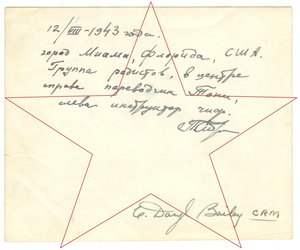 12/VIII-1943 года.
город Миами, Флорида, США.
Группа радистов, в центре
справа переводчик Тони,
слева инструктор
Bailey CRM